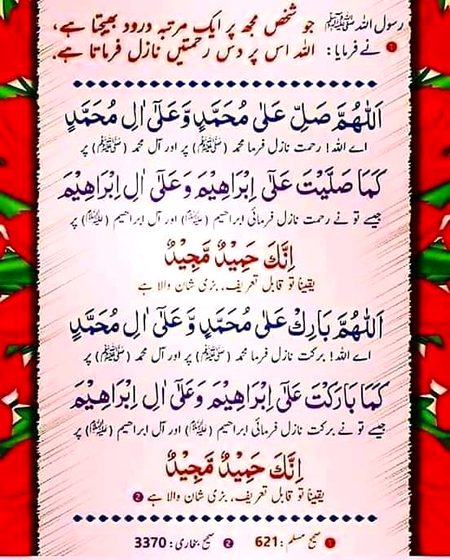 رسول اللہ ﷺ نے فرمایا: ❶
جو شخص مجھ پر ایک مرتبہ درود بھیجتا ہے،
اللہ اس پر دس رحمتیں نازل فرماتا ہے.
اَللّٰهُمَّ صَلِّ عَلٰى مُحَمَّدٍ وَّعَلٰٓى اٰلِ مُحَمَّدٍ
اے اللہ! رحمت نازل فرما محمد (ﷺ) پر اور آل محمد (ﷺ) پر
كَمَا صَلَّيْتَ عَلٰٓى اِبْرَاهِيْمَ وَعَلٰٓى اٰلِ اِبْرَاهِيْمَ
جیسے تو نے رحمت نازل فرمائی ابراھیم (علیہ السلام) پر اور آل ابراھیم (علیہ السلام) پر
اِنَّكَ حَمِيْدٌ مَّجِيْدٌ
یقیناً تو قابل تعریف، بڑی شان والا ہے
اَللّٰهُمَّ بَارِكْ عَلٰى مُحَمَّدٍ وَّعَلٰٓى اٰلِ مُحَمَّدٍ
اے اللہ! برکت نازل فرما محمد (ﷺ) پر اور آل محمد (ﷺ) پر
كَمَا بَارَكْتَ عَلٰٓى اِبْرَاهِيْمَ وَعَلٰٓى اٰلِ اِبْرَاهِيْمَ
جیسے تو نے برکت نازل فرمائی ابراھیم (علیہ السلام) پر اور آل ابراھیم (علیہ السلام) پر
اِنَّكَ حَمِيْدٌ مَّجِيْدٌ
یقیناً تو قابل تعریف، بڑی شان والا ہے ❷
❶ صحیح مسلم: 621 ❷ صحیح بخاری: 3370